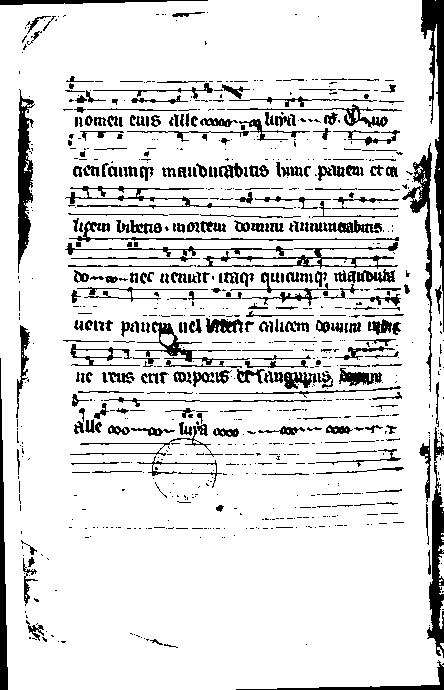 nomen eius alle luya Quo
cienscunq manducabitis hunc panem et ca
licem bibetis mortem domini annunciabitis
do nec ueniat itaq quicunq manduca
uerit panem uel biberit calicem domini indig
ne reus erit corporis et sanguinis domini
alle luya